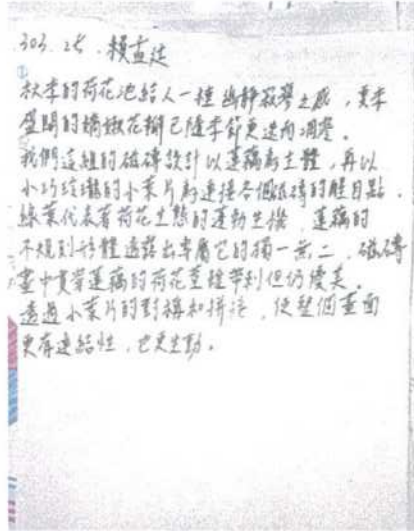 303. 25. 賴孟廷
秋季的荷花池給人一種幽靜寂寥之感,夏季
盛開的嬌嫩花瓣已隨季節更迭而凋零。
我們這組的磁磚設計以蓮藕為主體,再以
小巧玲瓏的小葉片為連接各個磁磚的醒目點。
綠葉代表著荷花生態的蓬勃生機,蓮藕的
不規則形體透露出專屬它的獨一無二,磁磚
畫中貫穿蓮藕的荷花莖雖帶刺但仍優美。
透過小葉片的對稱和拼接,使整個畫面
更有連結性,也更生動。